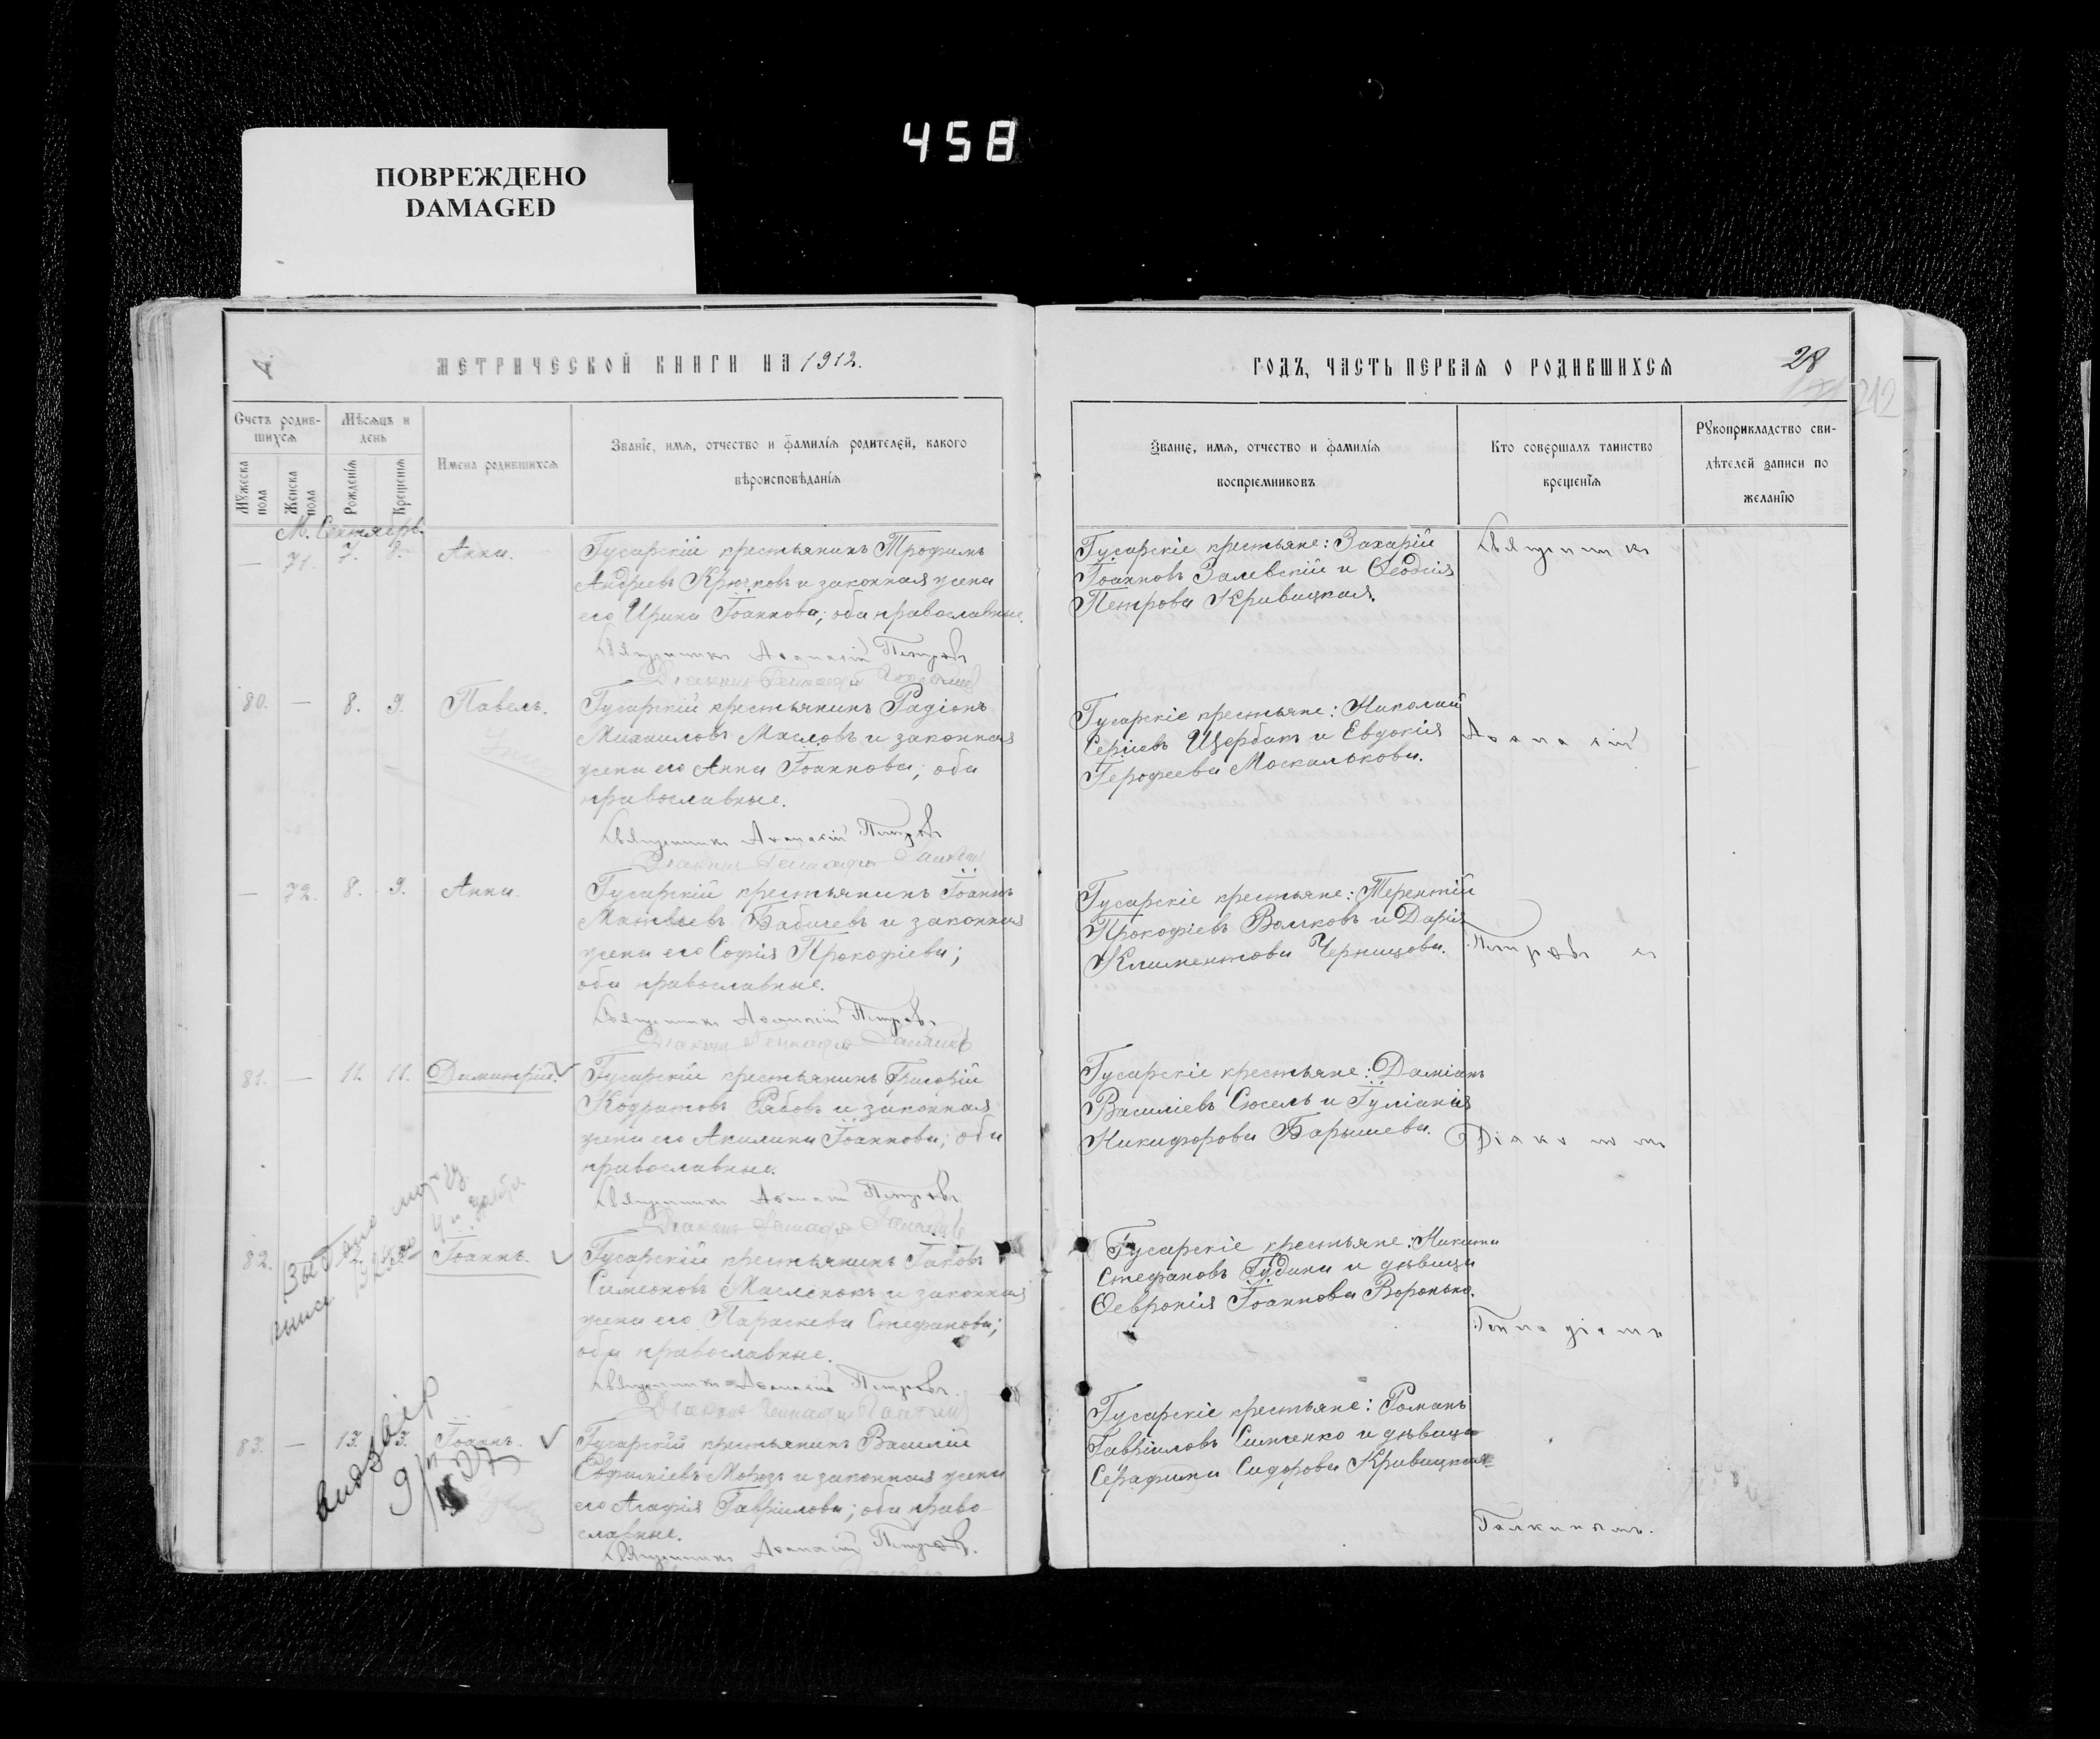 458
ПОВРЕЖДЕНО
DAMAGED
МЕТРИЧЕСКОЙ КНИГИ НА 1912.
Счетъ родив-
шихся
Мѣсяцъ и
день
Мужеска
пола
Женска
пола
Рожденія
Крещенія
Имена родившихся
Званіе, имя, отчество и фамилія родителей, какого
вѣроисповѣданія
М. Сентябрь.
— 71. 7. 8. Анна.
Гусарскій крестьянинъ Трофимъ
Андреевъ Крючковъ и законная жена
его Ирина Іоаннова; оба православные.
Священникъ Аѳанасій Петровъ
Діаконъ Геннадій Галкинъ
80. — 8. 9. Павелъ.
Гусарскій крестьянинъ Радіонъ
Михаиловъ Масловъ и законная
жена его Анна Іоаннова; оба
православные.
Священникъ Аѳанасій Петровъ
Діаконъ Геннадій Галкинъ
— 72. 8. 9. Анна.
Гусарскій крестьянинъ Іоаннъ
Матвѣевъ Бабичевъ и законная
жена его Софія Прокофіева;
оба православные.
Священникъ Аѳанасій Петровъ
Діаконъ Геннадій Галкинъ
81. — 11. 11. Димитрій.
Гусарскій крестьянинъ Григорій
Кодратовъ Рябовъ и законная
жена его Акилина Іоаннова; оба
православные.
Священникъ Аѳанасій Петровъ
Діаконъ Геннадій Галкинъ
82. Іоаннъ.
Гусарскій крестьянинъ Іаковъ
Симеоновъ Масленокъ и законная
жена его Параскева Стефанова;
оба православные.
Священникъ Аѳанасій Петровъ.
Діаконъ Геннадій Галкинъ
83. — 13. 13. Іоаннъ.
Гусарскій крестьянинъ Василій
Евфиміевъ Морозъ и законная жена
его Агафія Гавріилова; оба право-
славные.
Священникъ Аѳанасій Петровъ.
ГОДЪ, ЧАСТЬ ПЕРВАЯ О РОДИВШИХСЯ
28
212
Званіе, имя, отчество и фамилія
воспріемниковъ
Кто совершалъ таинство
крещенія
Рукоприкладство сви-
дѣтелей записи по
желанію
Гусарскіе крестьяне: Захарій
Іоанновъ Залевскій и Ѳеодосія
Петрова Кривицкая.
Священникъ
Гусарскіе крестьяне: Николай
Сергіевъ Щербакъ и Евдокія
Іерофеева Москалькова.
Аѳанасій
Гусарскіе крестьяне: Терентій
Прокофіевъ Волковъ и Дарія
Климентова Черницова.
Петровъ съ
Гусарскіе крестьяне: Даміанъ
Василіевъ Сюсель и Іуліанія
Никифорова Барышева.
Діакономъ
Гусарскіе крестьяне: Никита
Стефановъ Гудина и дѣвица
Ѳевронія Іоаннова Воронько.
Геннадіемъ
Гусарскіе крестьяне: Романъ
Гавріиловъ Симченко и дѣвица
Серафима Сидорова Кривицкая.
Галкинымъ.